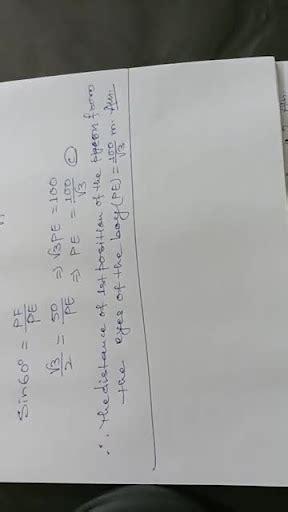 Sin60° = PF/PE
√3/2 = 50/PE ⇒ √3PE = 100
⇒ PE = 100/√3 (C)
∴ The distance of 1st position of the pigeon from
the eyes of the boy (PE) = 100/√3 m. Ans.